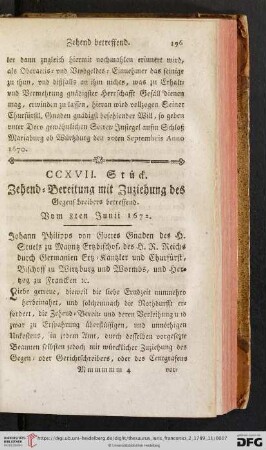 Zehend betreffend. 196
ter dann zugleich hiermit nochmahlen erinnert wird,
als Oberacis- und Umgeldes-Einnehmer das seinige
zu thun, und dißfalls an ihm nichts, was zu Erhalt-
und Vermehrung gnädigster Herrschafft Gefäll dienen
mag, erwinden zu lassen, hieran wird vollzogen Seiner
Churfürstl. Gnaden gnädigst befehlender Will, so geben
unter Dero gewöhnlichen Secret Insiegel aufm Schloß
Marienburg ob Würtzburg den 20ten Septembris Anno
1670.
CCXVII. Stück.
Zehend-Bereitung mit Zuziehung des
Gegenschreibers betreffend.
Vom 8ten Junii 1672.
Johann Philipps von Gottes Gnaden des H.
Stuels zu Mayntz Ertzbischof, des H. R. Reichs
durch Germanien Ertz-Kantzler und Churfürst,
Bischoff zu Würtzburg und Wormbs, und Her-
tzog zu Francken ꝛc.
Liebe getreue, dieweil die liebe Erndzeit nunmehro
herbeinahet, und solchemnach die Nothdurfft er-
fordert, die Zehend-Bereit- und deren Verleihung und
zwar zu Ersparung überflüssigen, und unnöthigen
Unkostens, in jedem Amt, durch desselben vorgesetzte
Beamten selbsten jedoch mit würcklicher Zuziehung des
Gegen- oder Gerichtschreibers, oder des Centgrafens
M m m m m m 4 vor-
http://digi.ub.uni-heidelberg.de/diglit/thesaurus_iuris_franconici_2_1789_11/0017
UNIVERSITÄTS-
BIBLIOTHEK
HEIDELBERG
Gefördert durch die
DFG